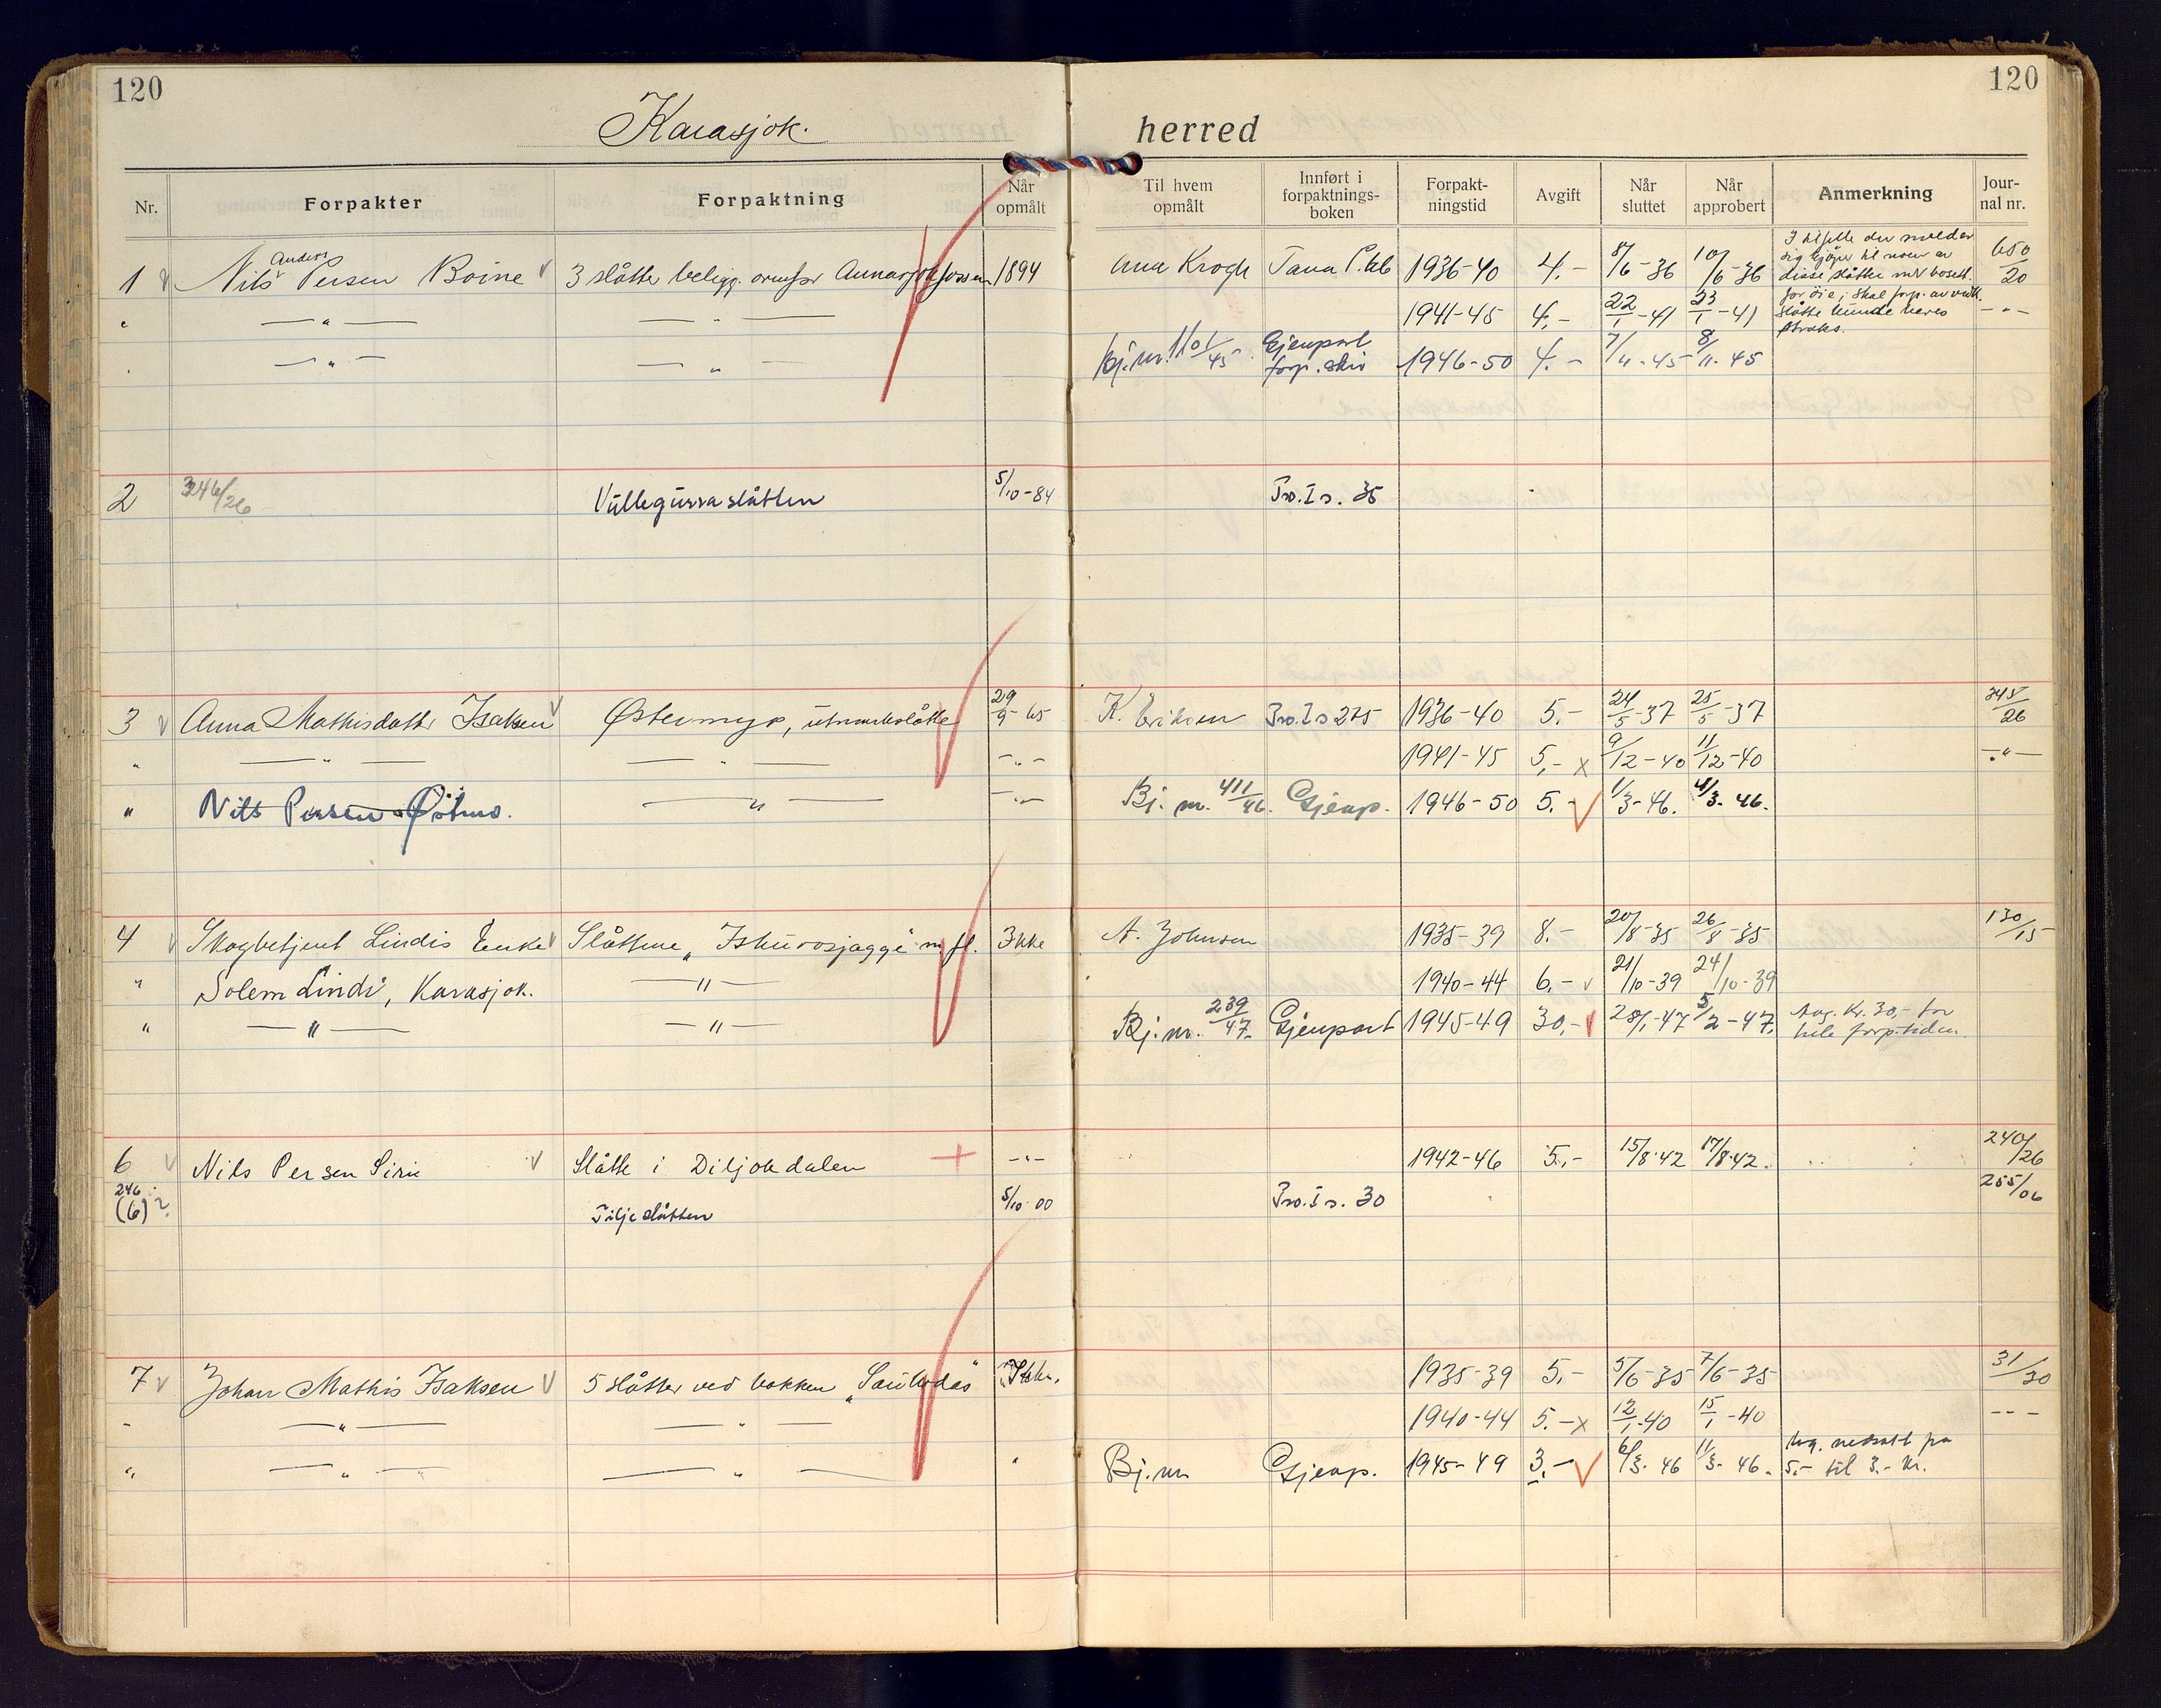 120
120
Karasjok. herred
Nr. Forpakter Forpaktning Når opmålt Til hvem opmålt Innført i forpaktnings-boken Forpakt-ningstid Avgift Når sluttet Når approbert Anmerkning Jour-nal nr.
Anders
1 Nils Persen Boine 3 slåtter beligg. ovenfor 1894 Krogh Tana 1936-40 4.- 8/6-36 10/6-36 650/20
" —"— —"— 1941-45 4,- 22/1-41 23/1-41 -"-
—"— —"— Bj.nr. 1101/45 Gjenpart forp. skiv 1946-50 4.- 7/11-45 8/11-45
2 3246/26 Vullegurraslåtten 5/10-84 Pro. I s. 35
3 Anna Mathisdatter Isaksen Østermyr, utmarkslåtte 29/9-65 K. Eriksen Pro. I s 275 1936-40 5.- 24/5-37 25/5-37 345/26
" —"— —"— -"- 1941-45 5,- x 9/12-40 11/12-40 -"-
" Nils Persen Østmo. —"— -"- Bj. nr. 411/46. Gjenp. 1946-50 5.- 1/3-46. 4/3-46.
4 Skogbetjent Lindis Enke Slåttene "Iskurasjagge" m fl. Ikke A. Johnsen 1935-39 8.- 20/8-35 26/8-35 130/15
" Solem Lindi, Karasjok. —"— 1940-44 6,- 21/10-39 24/10-39
" —"— —"— Bj. nr. 239/47. Gjenpart 1945-49 30,- 28/1-47 5/2-47. Avg. Kr. 30,- for
hele forp.tiden.
6 Nils Persen Siri Slåtte i Diljokdalen -"- 1942-46 5,- 15/8-42 17/8-42. 240/26
246 (6)? Tiljeslåtten 5/10-00 Pro. I s. 30 255/06
7 Johan Mathis Isaksen 5 slåtter ved bakken Ikke. 1935-39 5.- 5/6-35 7/6-35 31/30
- —"— —"— 1940-44 5.- x 12/1-40 15/1-40 ---
" —"— —"— " Bj. nr Gjenp. 1945-49 3,- 6/3-46 11/3-46. Avg. nedsatt fra
5.- til 3.- kr.